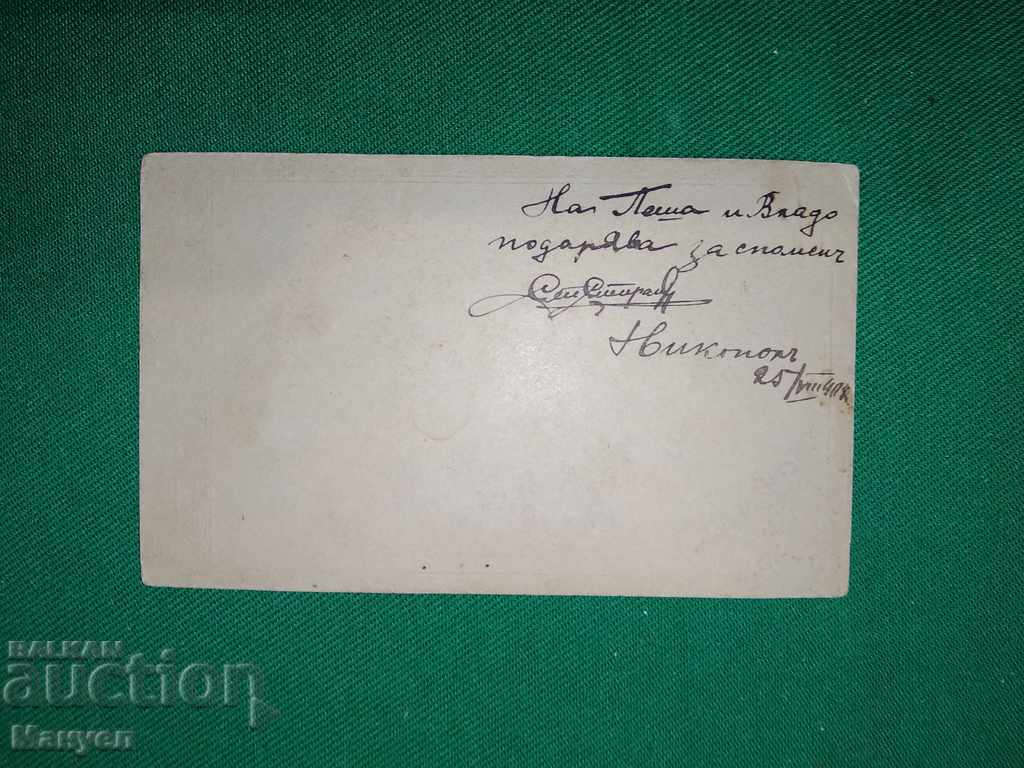 На Пеша и Владо
подарява за споменъ
Никополъ
25/VIII
BALKAN
auction
Мануел